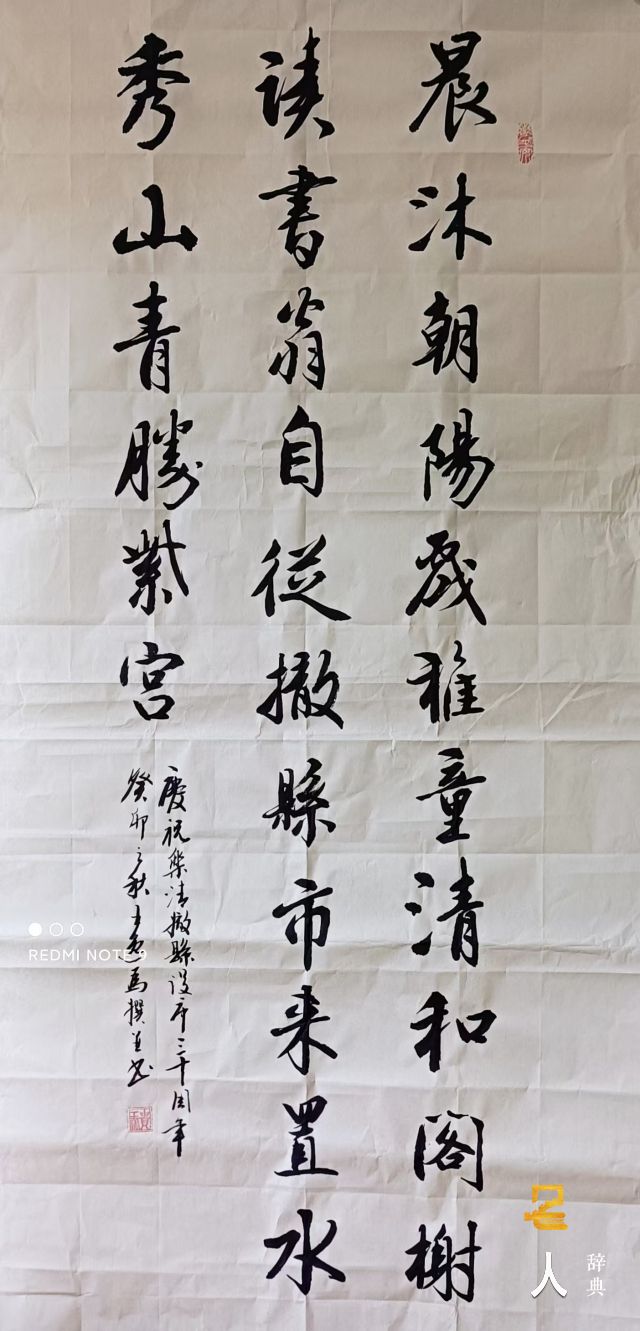 晨沐朝陽戲稚童清和阁榭
读書翁自從撤縣市来置水
秀山青勝紫宫
慶祝樂清撤縣設市三十周年
癸卯之秋 撰並书
REDMI NOTE 9
人
辞典